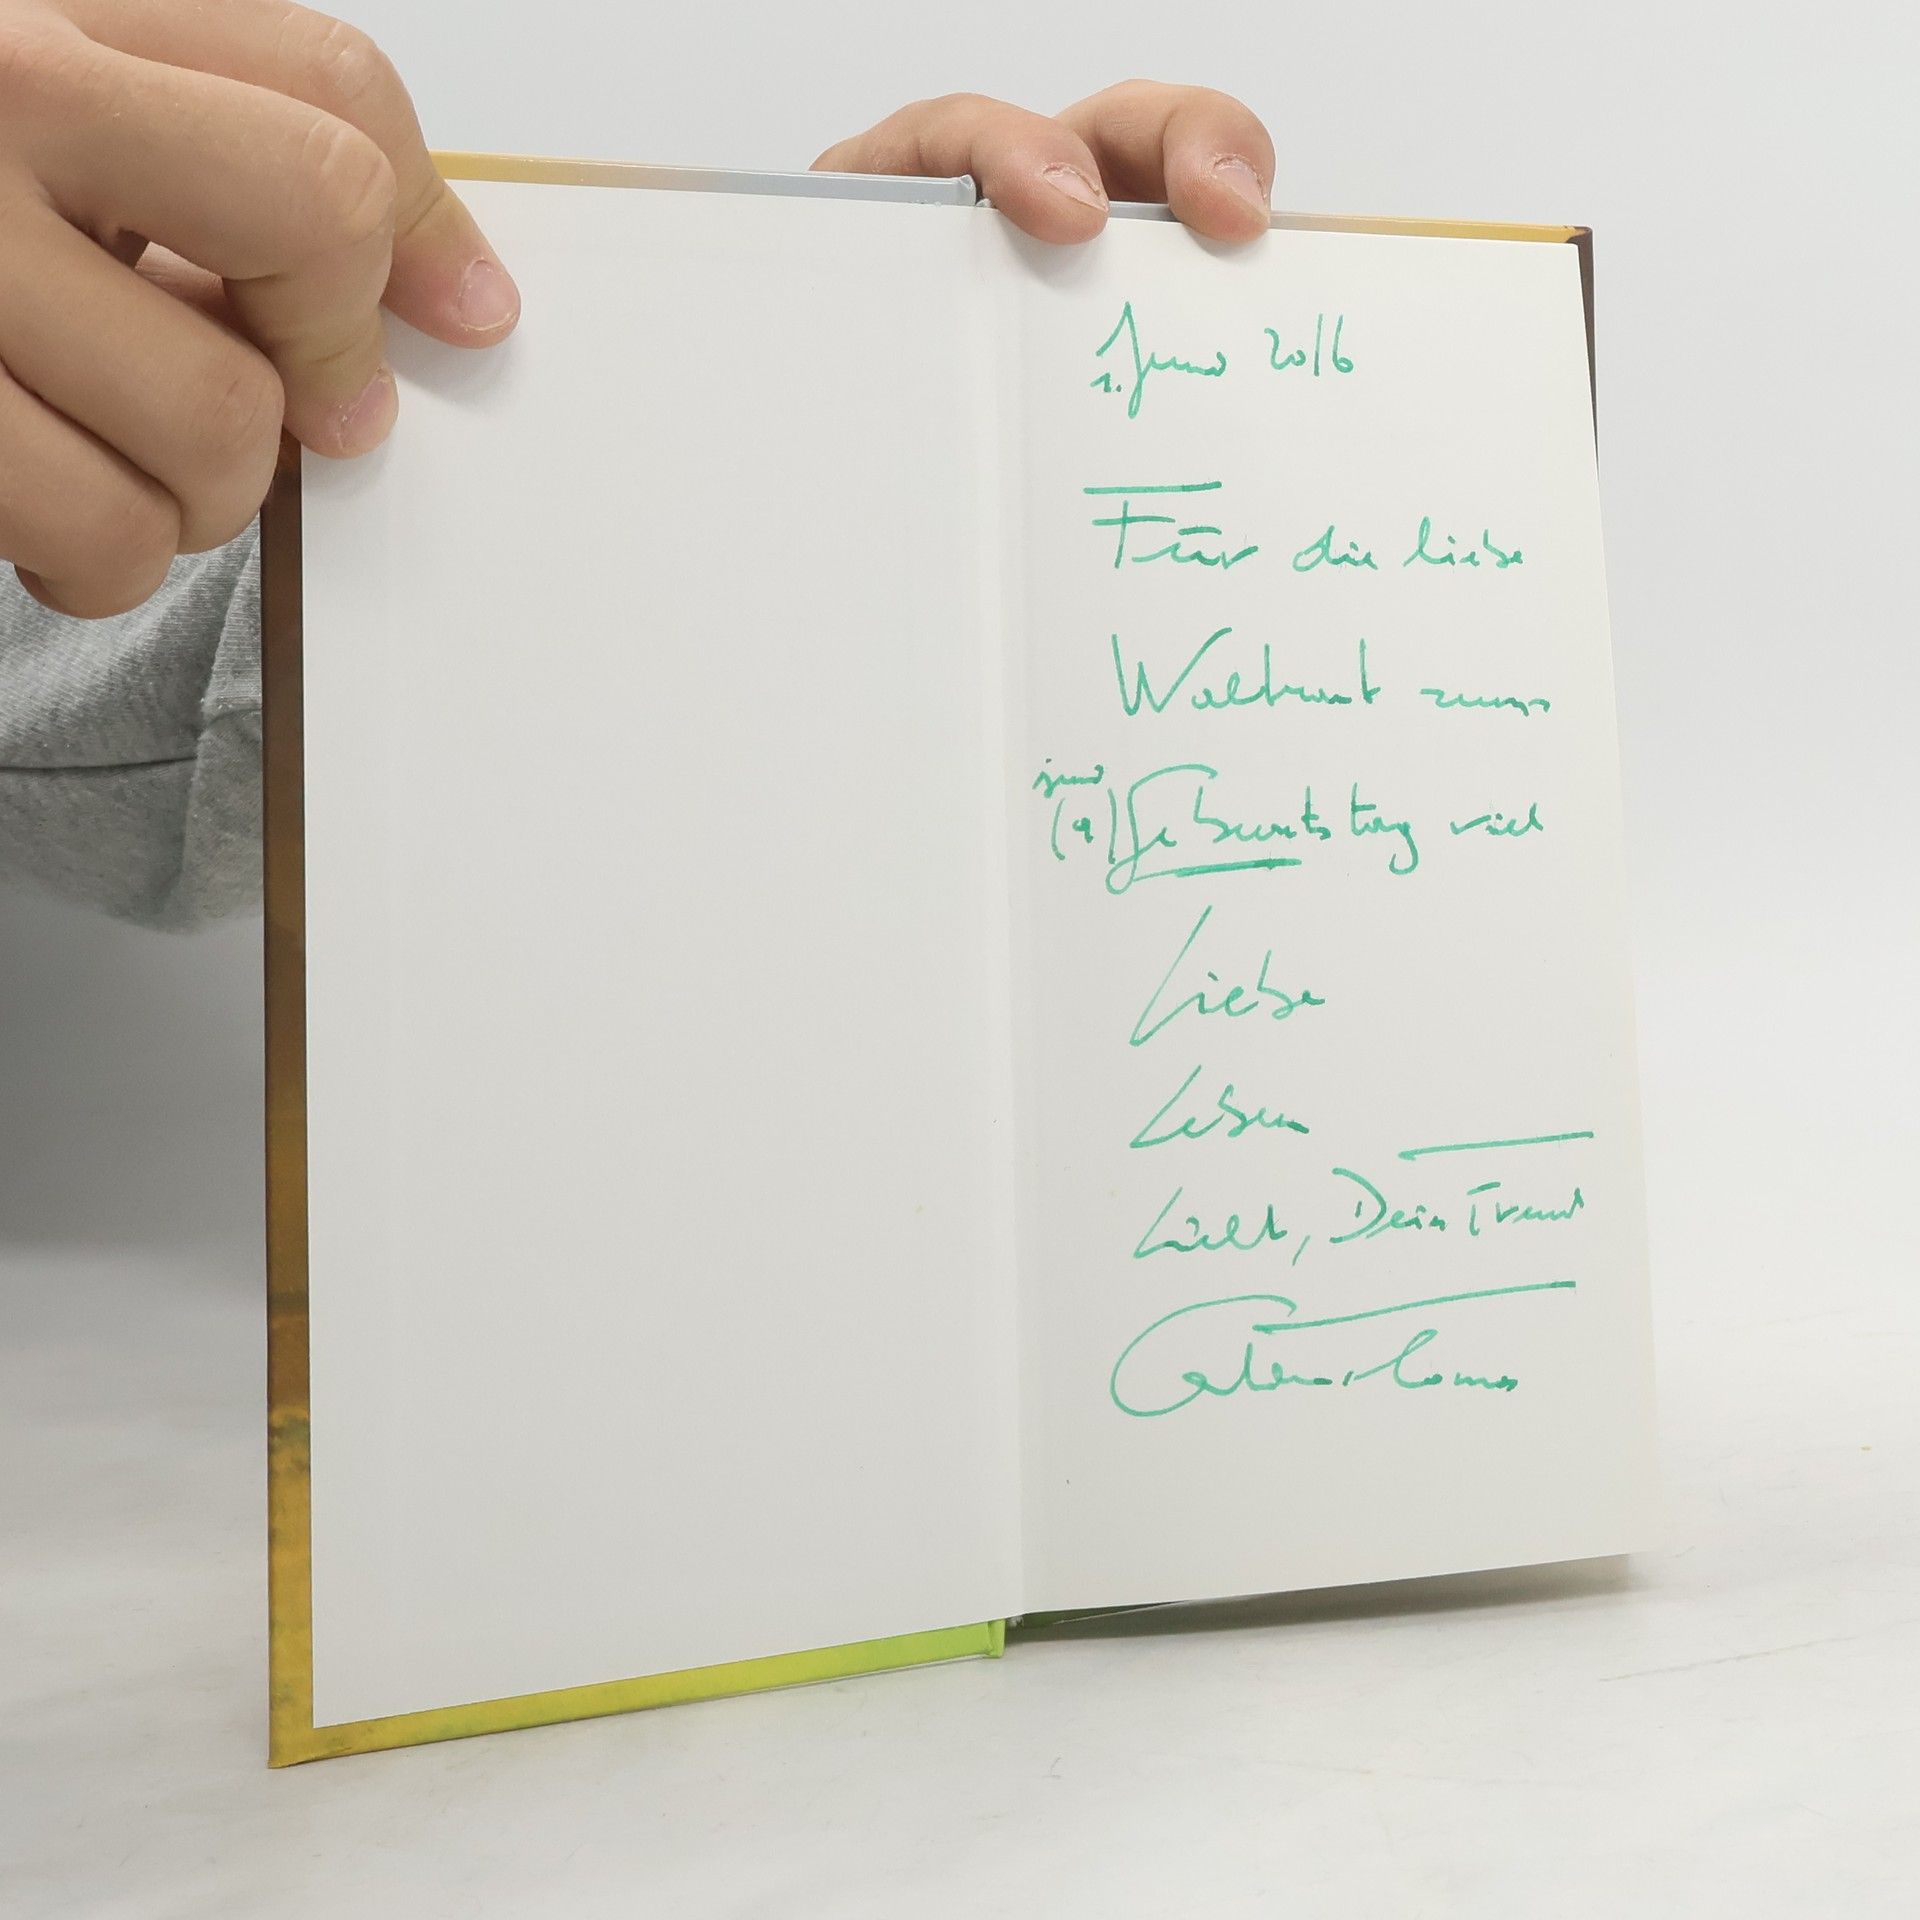 1. Juno 2016
Für die liebe
Waltraut zum
Geburtstag viel
Liebe
Leben
Licht, Dein Freund